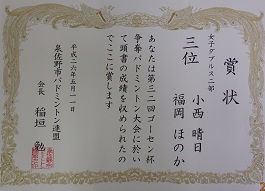 賞状
女子ダブルス二部
三位
小西晴日
福岡ほのか
あなたは第三二回ゴーセン杯
争奪バドミントン大会に於い
て頭書の成績を収められたの
でここに賞します
平成二六年五月一一日
泉佐野市バドミントン連盟
会長 稲垣勉